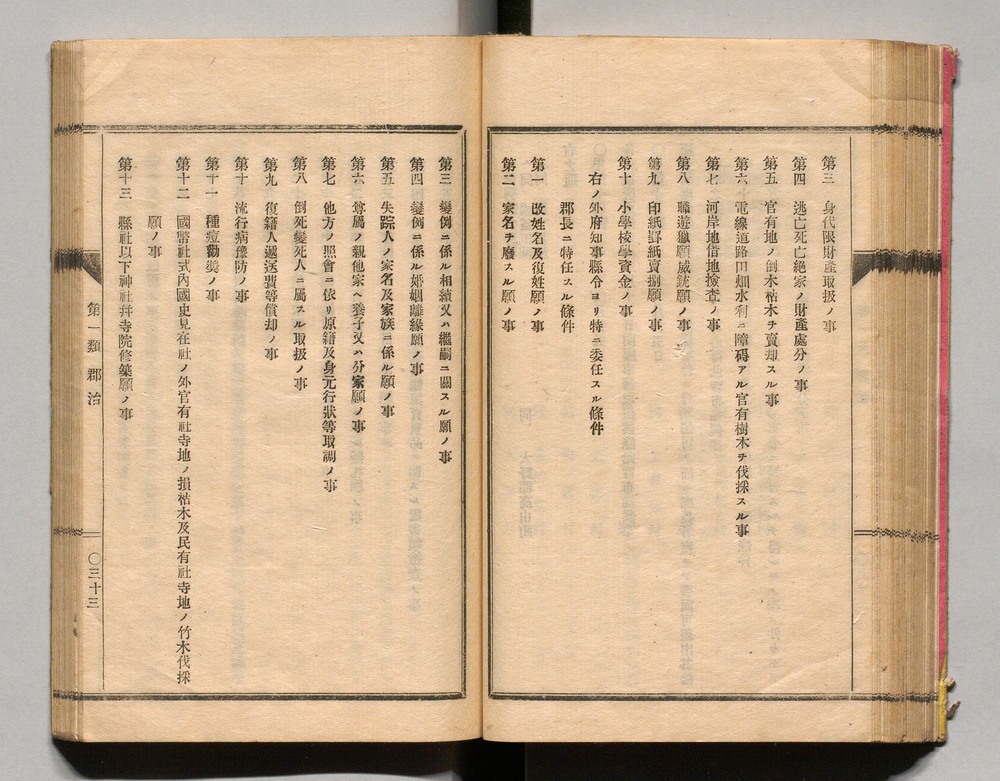 第三　身代限財產取扱ノ事
第四　逃亡死亡絕家ノ財產處分ノ事
第五　官有地ノ倒木枯木チ賣却スル事
第六　電線道路田畑水利ニ障碍アル官有樹木チ伐採スル事
第七　河岸地借地檢查ノ事
第八　職遊獵願威銃願ノ事
第九　印紙罫紙賣捌願ノ事
第十　小學校學資金ノ事
右ノ外府知事縣令ヨリ特ニ委任スル條件
郡長ニ特任スル條件
第一　改姓名及復姓願ノ事
第二　家名チ廢スル願ノ事
第三　變例ニ係ル相續又ハ繼嗣ニ關スル願ノ事
第四　變例ニ係ル婚姻離緣願ノ事
第五　失踪人ノ家名及家族ニ係ル願ノ事
第六　尊屬ノ親他家ヘ養子又ハ分家願ノ事
第七　他方ノ照會ニ依リ原籍及身元行狀等取調ノ事
第八　倒死變死人ニ屬スル取扱ノ事
第九　復籍人遞送費等償却ノ事
第十　流行病豫防ノ事
第十一　種痘勸奬ノ事
第十二　國幣社式內國史見在社ノ外官有社寺地ノ損枯木及民有社寺地ノ竹木伐採
願ノ事
第十三　縣社以下神社幷寺院修築願ノ事
第一類　郡治
〇三十三